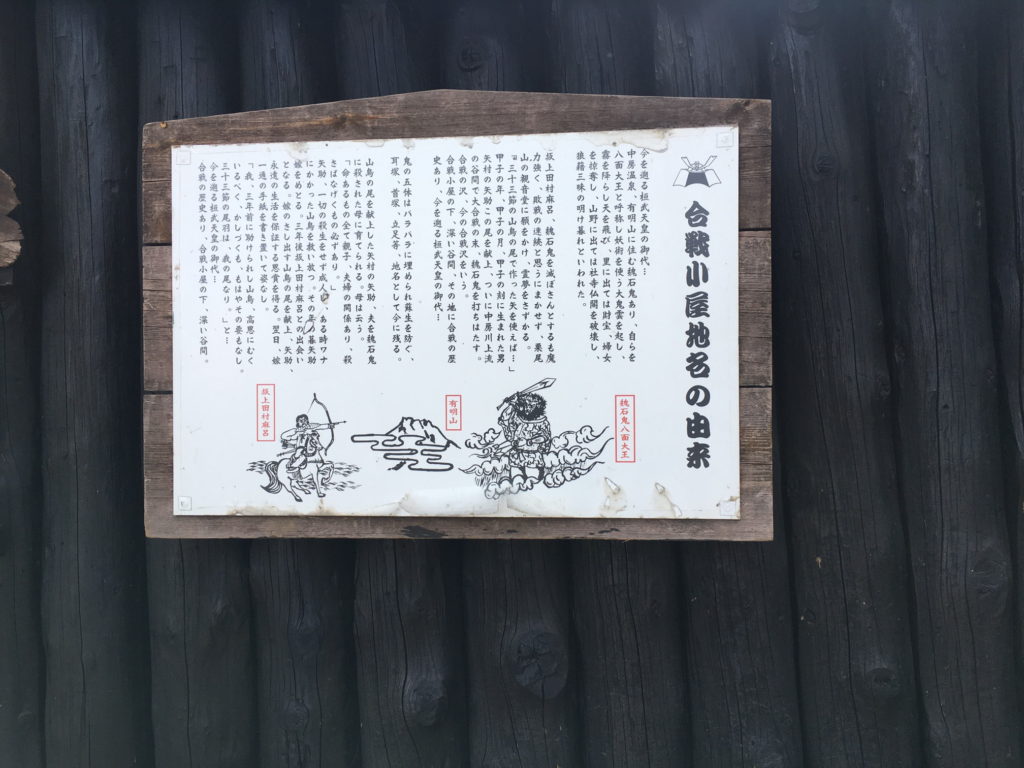 合戦小屋地名の由来
今を遡る桓武天皇の御代…
中房温泉、有明山に挟む魏石鬼あり、自らを
八面大王と呼称し妖術を使う大鬼雲を起し、
霧を降らし天を飛び、里に出ては財宝、婦女
を掠奪し、山野に出ては社寺仏閣を破壊し、
狼藉三昧の明け暮れといわれた。
坂上田村麻呂、魏石鬼を滅ぼさんとするも魔
力強く、敗戦の連続と思うにまかせず、栗尾
山の観音堂に願をかけ、霊夢をさずかる。
『三十三節の山鳥の尾で作った矢を使えば…』
甲子の年、甲子の月、甲子の刻に生まれた男
矢村の矢助この尾を献上、ついに中房川上流
の谷間で大合戦の末、魏石鬼を打ちはたす。
合戦の沢、今の合戦沢をいう。
合戦小屋の下、深い谷間、その地に合戦の歴
史あり、今を遡る桓武天皇の御代…
鬼の五体はバラバラに埋められ蘇生を防ぐ、
耳塚、首塚、立足等、地名として今に残る。
山鳥の尾を献上した矢村の矢助、夫を魏石鬼
に殺された母に育てられる。母は云う。
「命あるもの全て親子、夫婦の関係あり、殺
さばなげくもの必ずあり。」
矢助、一切の殺生をせず成人し、ある時ワナ
にかかった山鳥を救い放つ。その年の暮矢助
嫁をめとる。三年後坂上田村麻呂との出会い
となる。嫁のさし出す山鳥の尾を献上、矢助、
永遠の生活を保証する恩賞を得る。翌日、嫁
一通の手紙を書き置いて姿なし。
「我、三年前に助けられし山鳥、高恩にむく
いるべく、かしづくも、もはやその要もなし。
三十三節の尾羽は、我の尾なり。」と…
今を遡る桓武天皇の御代…
合戦の歴史あり、合戦小屋の下、深い谷間。
魏石鬼八面大王
有明山
坂上田村麻呂